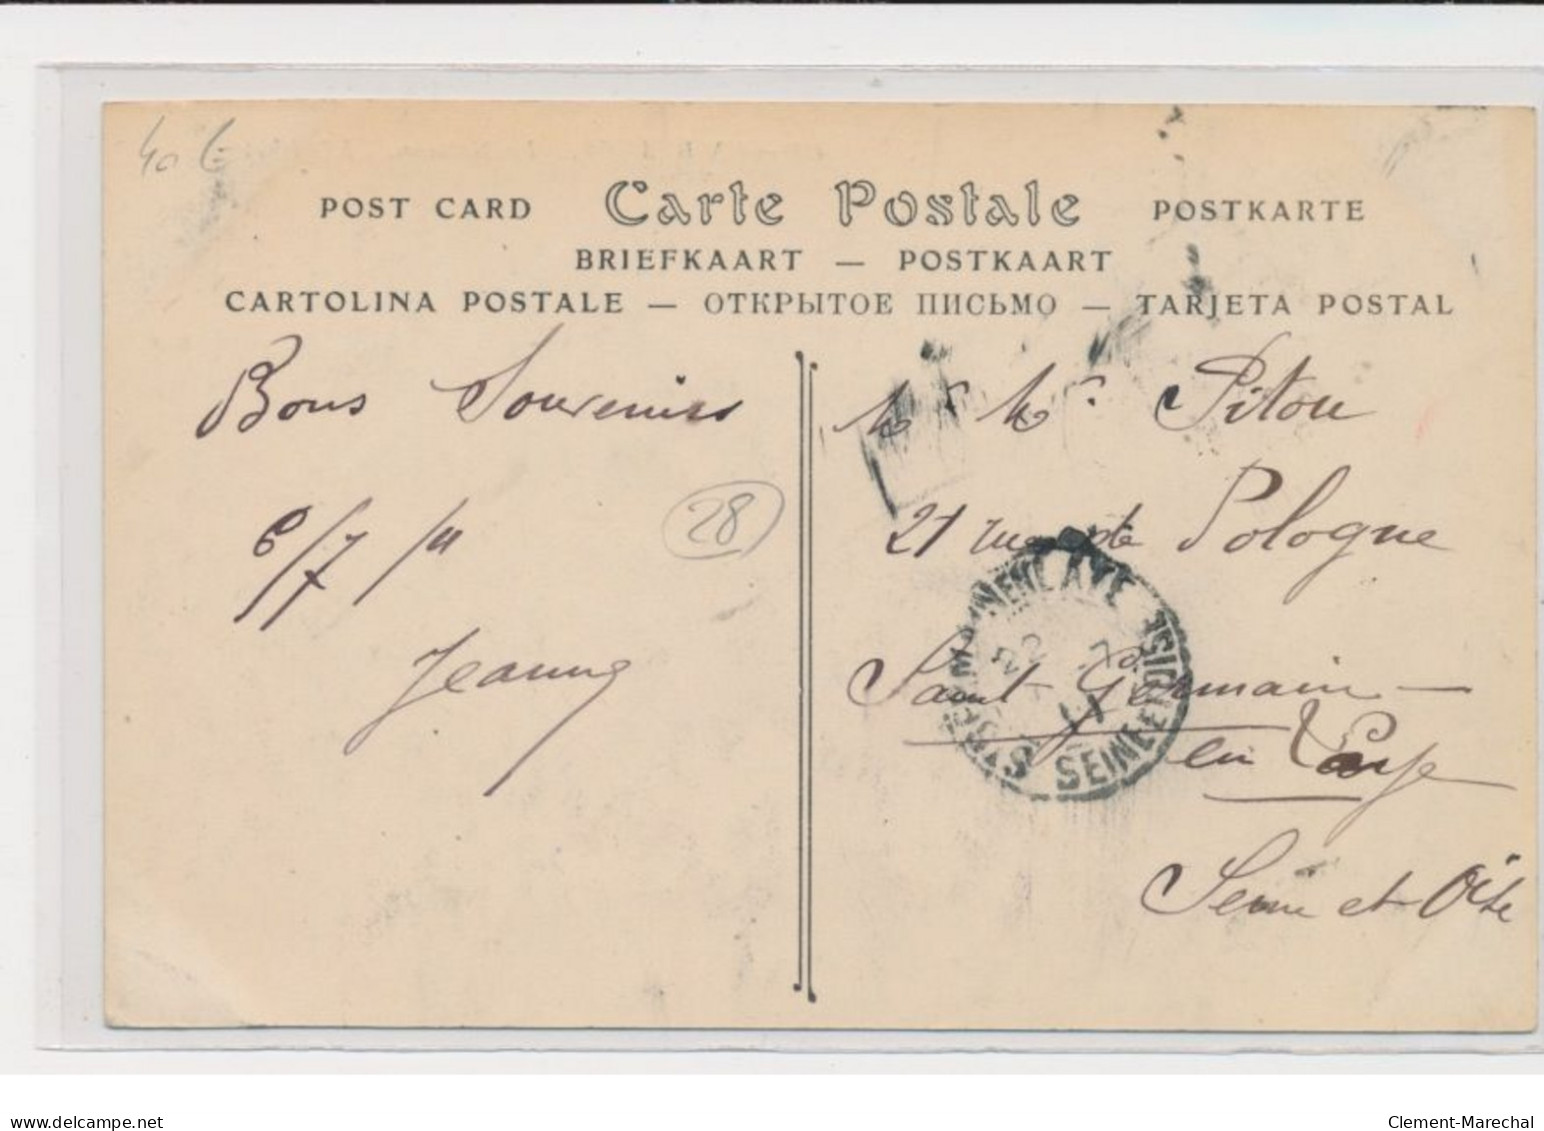 40 €
POST CARD Carte Postale POSTKARTE
BRIEFKAART — POSTKAART
CARTOLINA POSTALE — ОТКРЫТОЕ ПИСЬМО — TARJETA POSTAL
Bons Souvenirs
6/7/11
28
Jeanne
Mr Me Pitou
21 rue de Pologne
Saint-Germain-
en Laye
Seine et Oise
ST GERMAIN EN LAYE
22 7
11
SEINE ET OISE
delcampe.net
Clement-Marechal